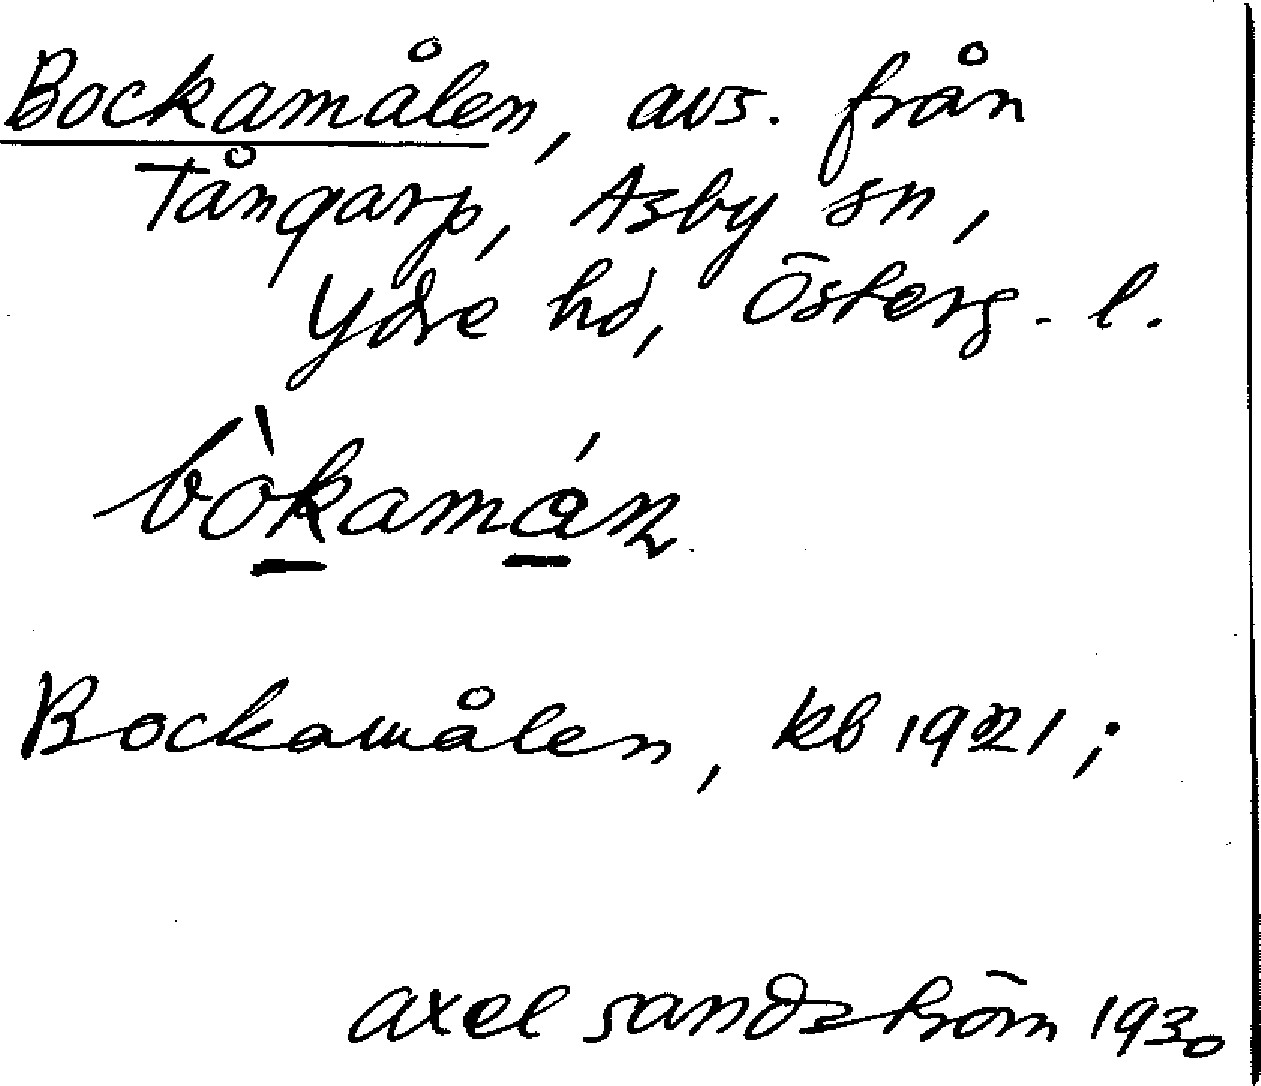 Bockamålen, avs. från
Tångarp, Asby sn,
Ydre hd, Österg. l.
bòkamán
Bockamålen, kb 1921;
Axel Sandström 1930